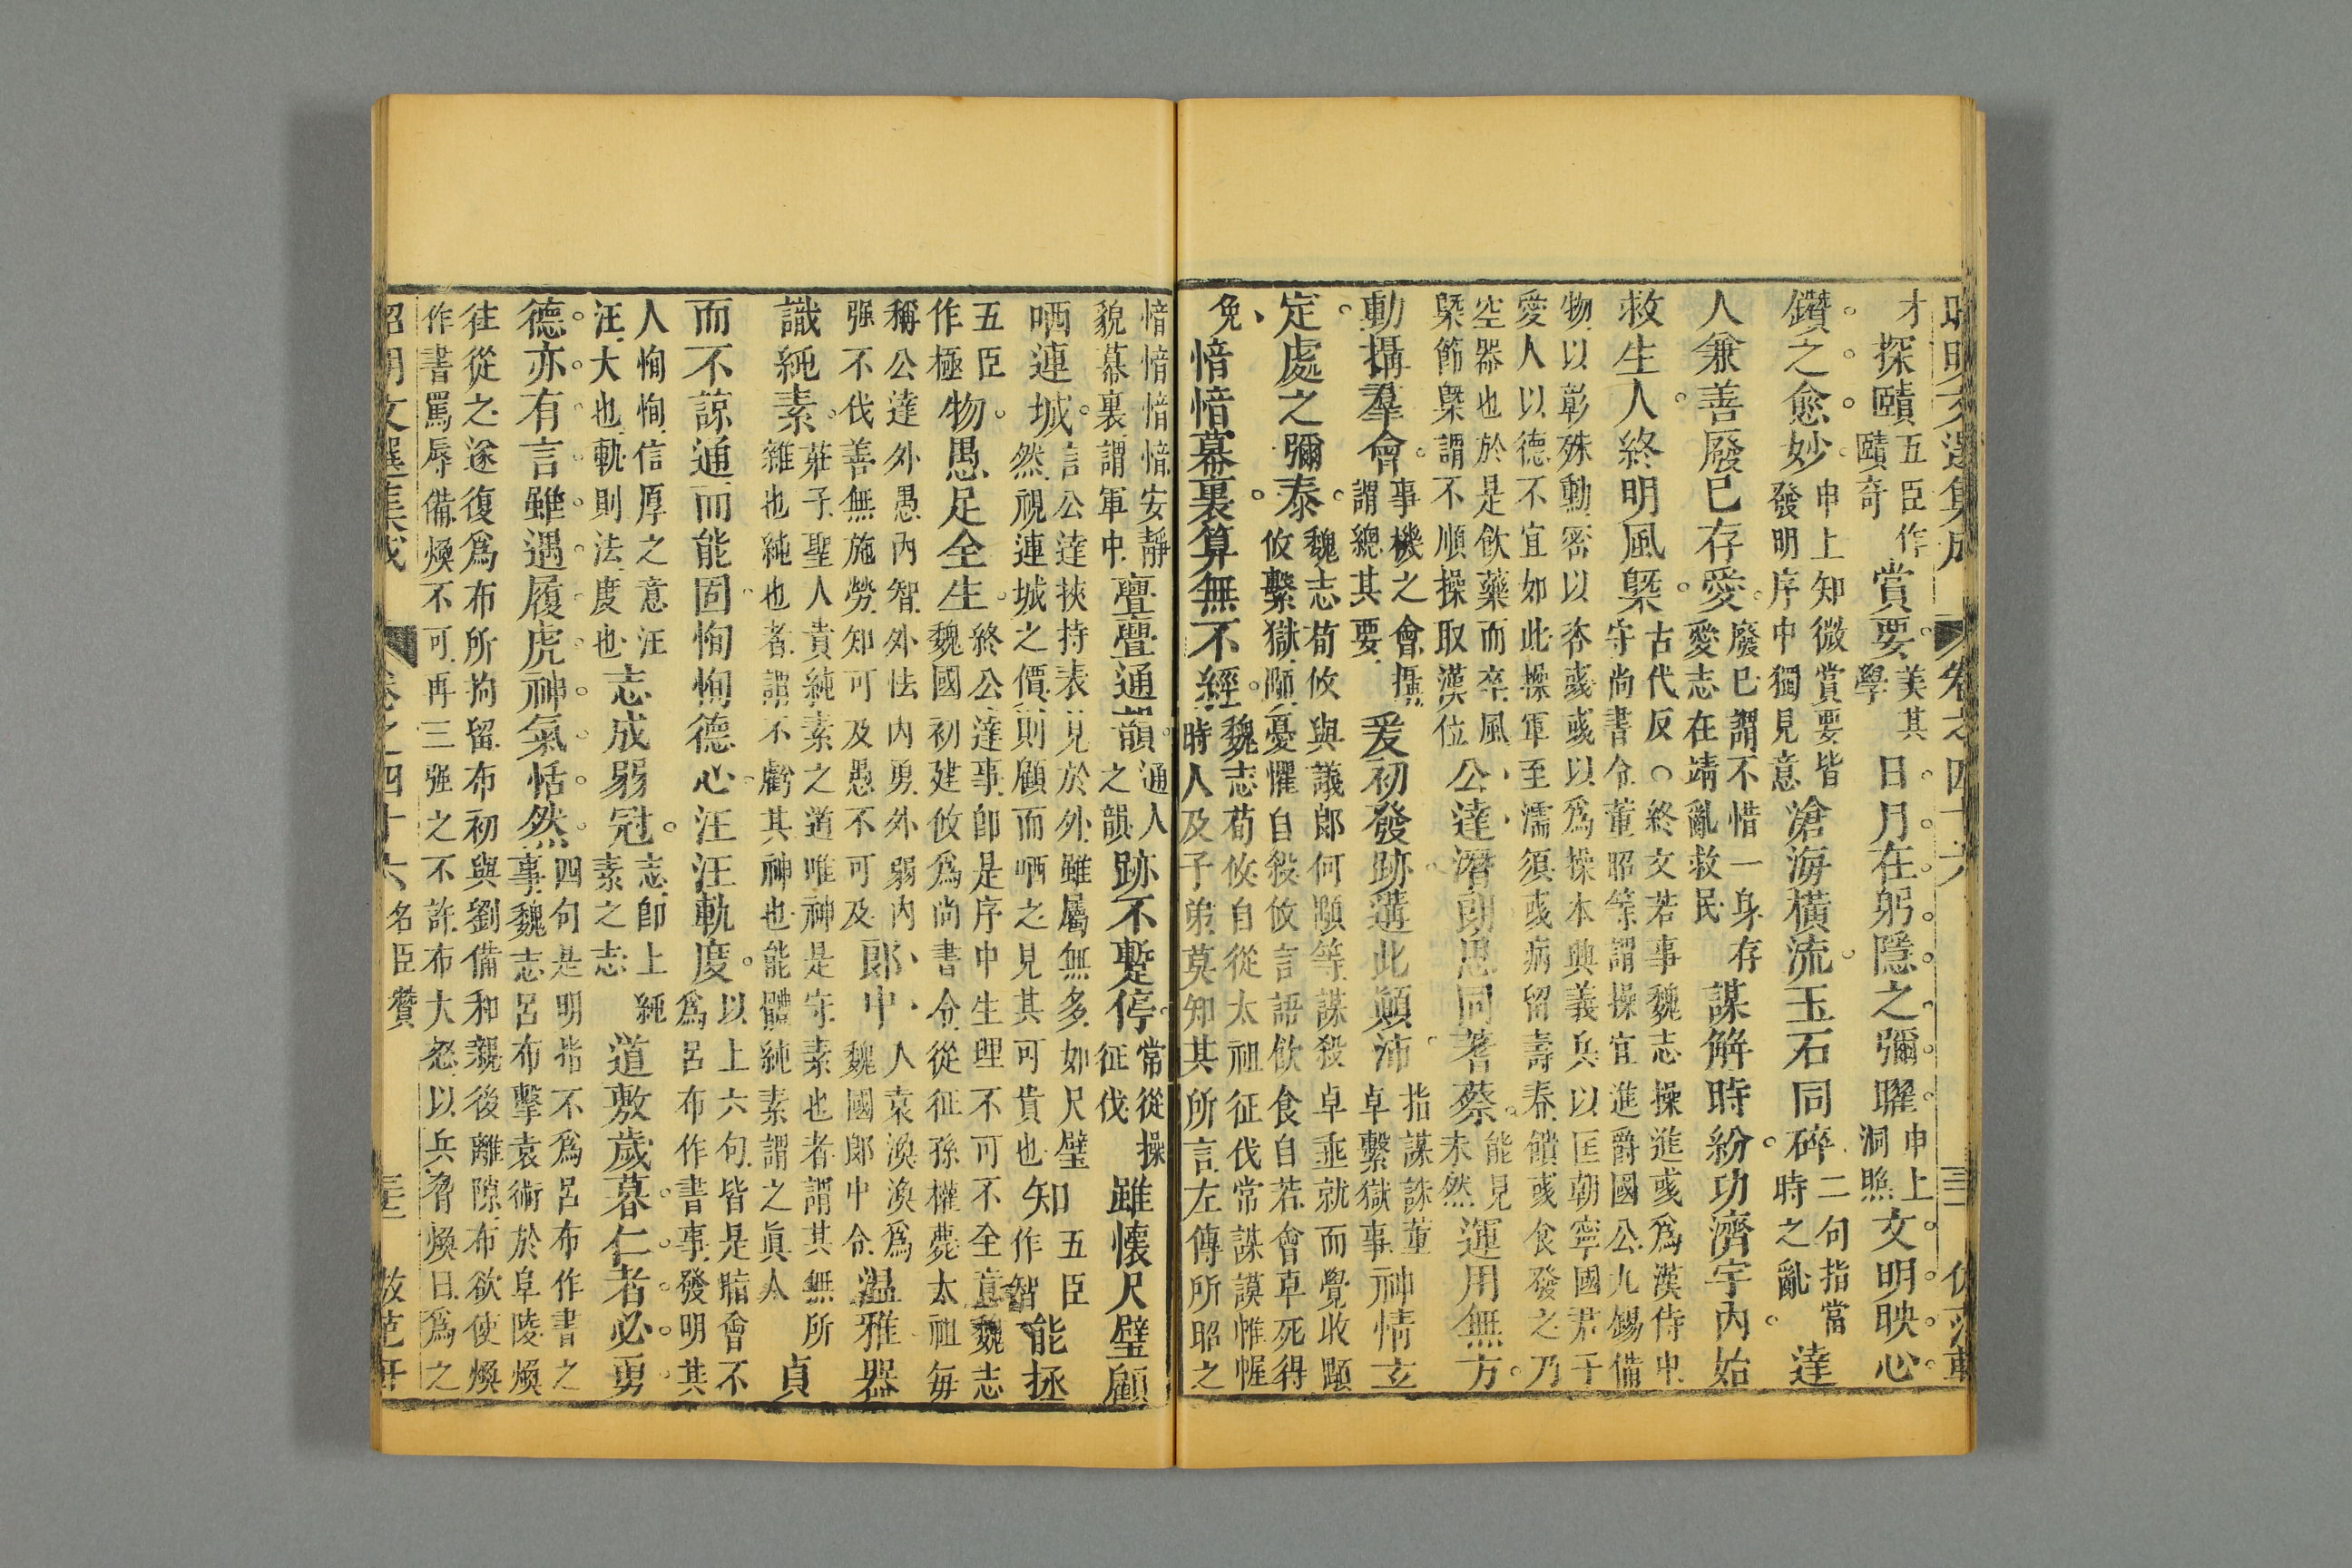 昭明文選集成 卷之四十六
才探賾五臣作賾奇賞要美其學日月在躬隱之彌曜申上洞照文明映心
鑽之愈妙申上知微賞要皆發明序中獨見意滄海橫流玉石同碎二句指當時之亂達
人兼善廢巳存愛廢巳謂不惜一身存愛志在靖亂救民謀解時紛功濟宇內始
救生人終明風槩古代反○終文若事魏志操進彧爲漢侍中守尚書令董昭等謂操宜進爵國公九錫備
物以彰殊勳密以咨彧彧以爲操本興義兵以匡朝寧國君子
愛人以德不宜如此操軍至濡須彧病留壽春饋彧食發之乃
空器也於是飲藥而卒風
槩節槩謂不順操取漢位公達潛朗思同蓍蔡能見未然運用無方
動攝羣會事機之會攝謂總其要爰初發跡遘此顛沛指謀誅董卓繫獄事神情玄
定處之彌泰魏志荀攸與議郎何顒等謀殺卓垂就而覺收顒
攸繫獄顒憂懼自殺攸言語飲食自若會卓死得
免愔愔幕裏算無不經魏志荀攸自從太祖征伐常謀謨帷幄
時人及子弟莫知其所言左傳所昭之
愔愔愔愔安靜
貌幕裏謂軍中亹亹通韻通人之韻跡不蹔停常從操征伐雖懷尺璧顧
哂連城言公達挾持表見於外雖屬無多如尺璧
然視連城之價則顧而哂之見其可貴也知五臣作智能拯
五臣作極物愚足全生終公達事卽是序中生理不可不全意魏志
魏國初建攸爲尚書令從征孫權薨太祖每
稱公達外愚內智外怯內勇外弱內
强不伐善無施勞知可及愚不可及郎中魏國郎中令人袁渙渙爲溫雅器
識純素莊子聖人貴純素之道唯神是守素也者謂其無所
雜也純也者謂不虧其神也能體純素謂之眞人貞
而不諒通而能固恂恂德心汪汪軌度以上六句皆是暗會不爲呂布作書事發明其
人恂恂信厚之意汪
汪大也軌則法度也志成弱冠志卽上純素之志道敷歲暮仁者必勇
德亦有言雖遇履虎神氣恬然四句是明指不爲呂布作書之
事魏志呂布擊袁術於阜陵煥
往從之遂復爲布所拘留布初與劉備和親後離隙布欲使煥
作書罵辱備煥不可再三强之不許布大怒以兵脅煥曰爲之
昭明文選集成 卷之四十六 名臣贊